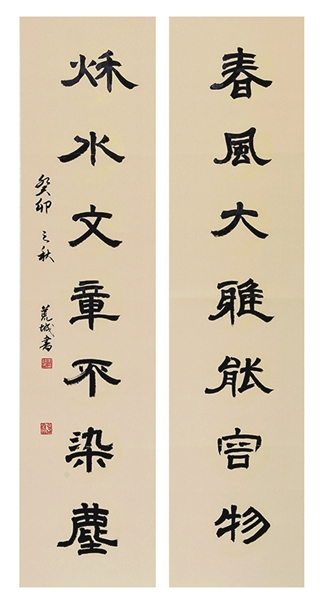 春風大雅能容物
秌水文章不染塵
癸卯之秋 荒城書